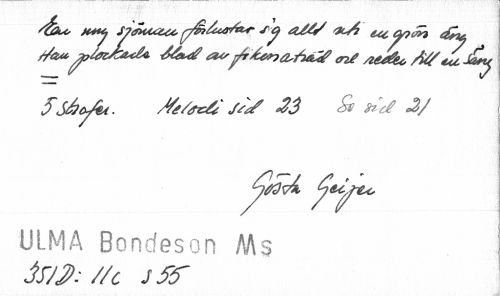 En ung sjöman förlustar sig allt uti en grön äng
Han plockade blad av fikonaträd och reder till en säng
=
5 strofer. Melodi sid 23 Se sid 21
Gösta Geijer
ULMA Bondeson Ms
351D: 11c s 55